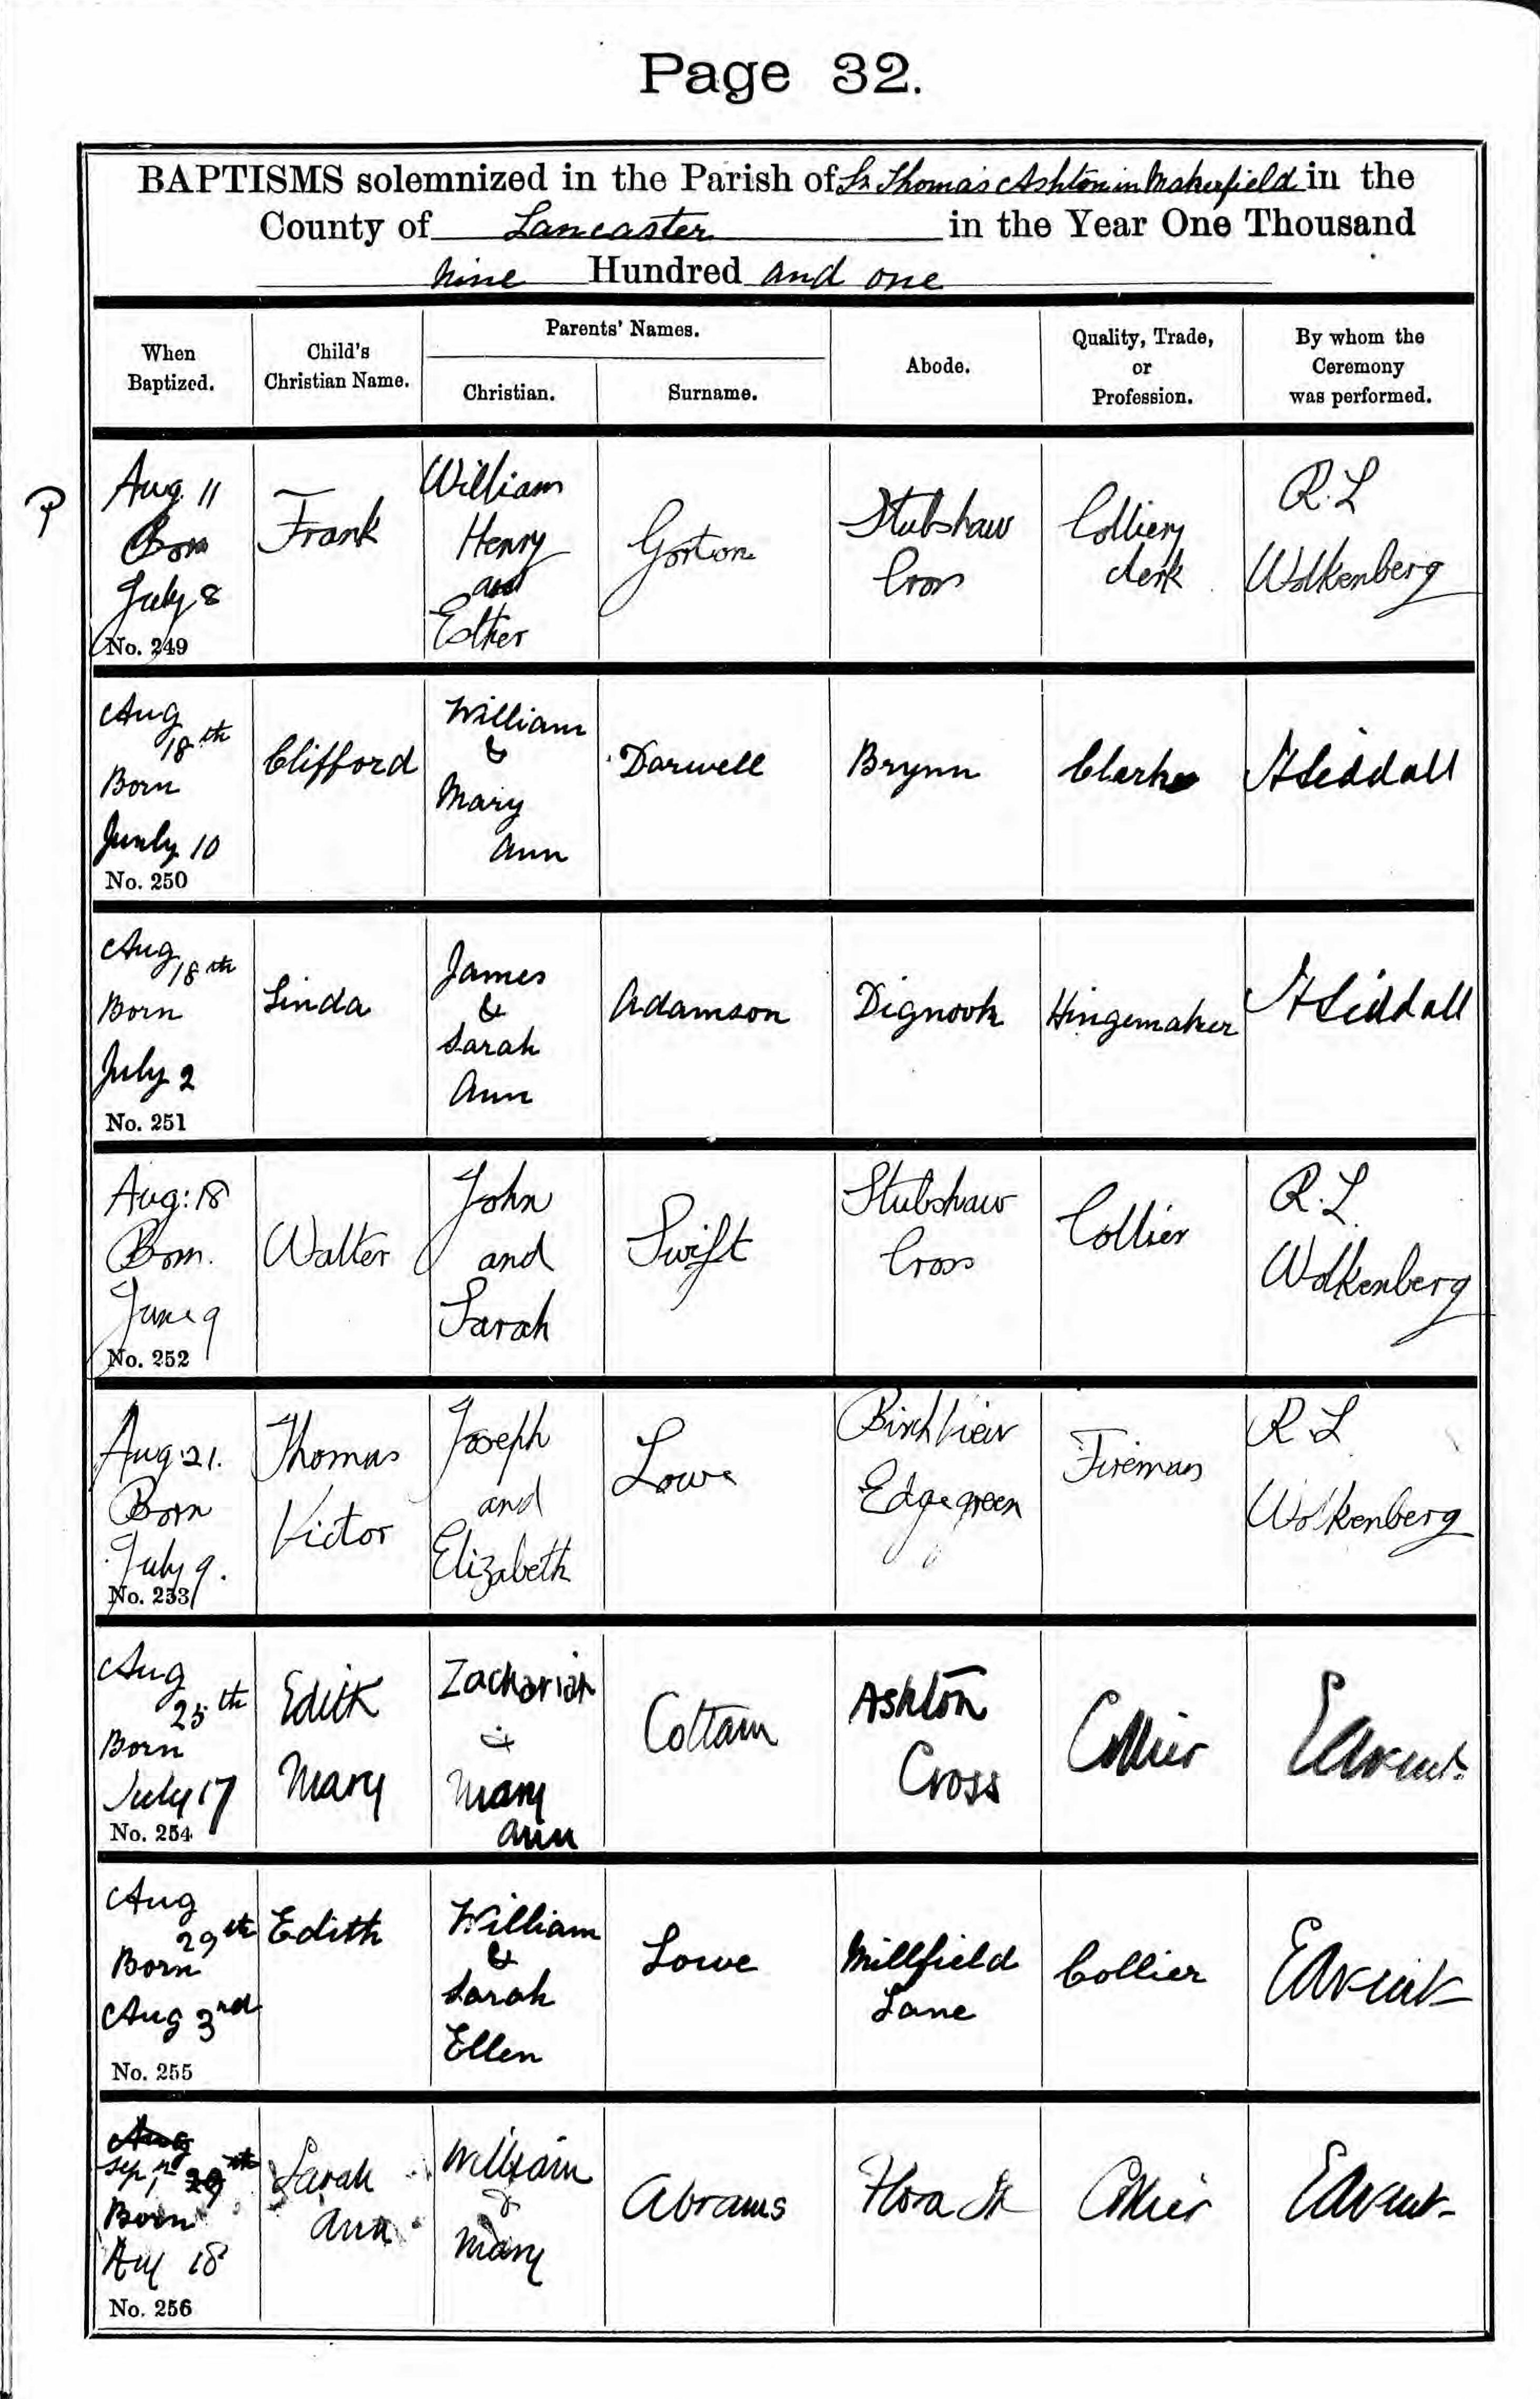 Page 32.
BAPTISMS solemnized in the Parish of St Thomas Ashton in Makerfield in the
County of Lancaster in the Year One Thousand
nine Hundred and one
When Baptized.
Child's Christian Name.
Parents' Names.
Christian.
Surname.
Abode.
Quality, Trade, or Profession.
By whom the Ceremony was performed.
P
Aug. 11
Born
July 8
No. 249
Frank
William
Henry
and
Esther
Gorton
Stubshaw
Cross
Colliery
clerk
R. L
Wolkenberg
Aug
18th
Born
July 10
No. 250
Clifford
William
&
Mary
Ann
Darwell
Brynn
Clerk
H Siddall
Aug
18th
Born
July 2
No. 251
Linda
James
&
Sarah
Ann
Adamson
Dignook
Hingemaker
H Siddall
Aug: 18
Born.
June 9
No. 252
Walter
John
and
Sarah
Swift
Stubshaw
Cross
Collier
R. L.
Wolkenberg
Aug. 21.
Born
July 9.
No. 253
Thomas
Victor
Joseph
and
Elizabeth
Lowe
Birch View
Edge green
Fireman
R. L
Wolkenberg
Aug
25th
Born
July 17
No. 254
Edith
Mary
Zachariah
&
Mary
Ann
Cottam
Ashton
Cross
Collier
Aug
29th
Born
Aug 3rd
No. 255
Edith
William
&
Sarah
Ellen
Lowe
Millfield
Lane
Collier
Aug
Sep 1st 29th
Born
Aug 18
No. 256
Sarah
Ann
William
&
Mary
Abrams
Flora St
Collier